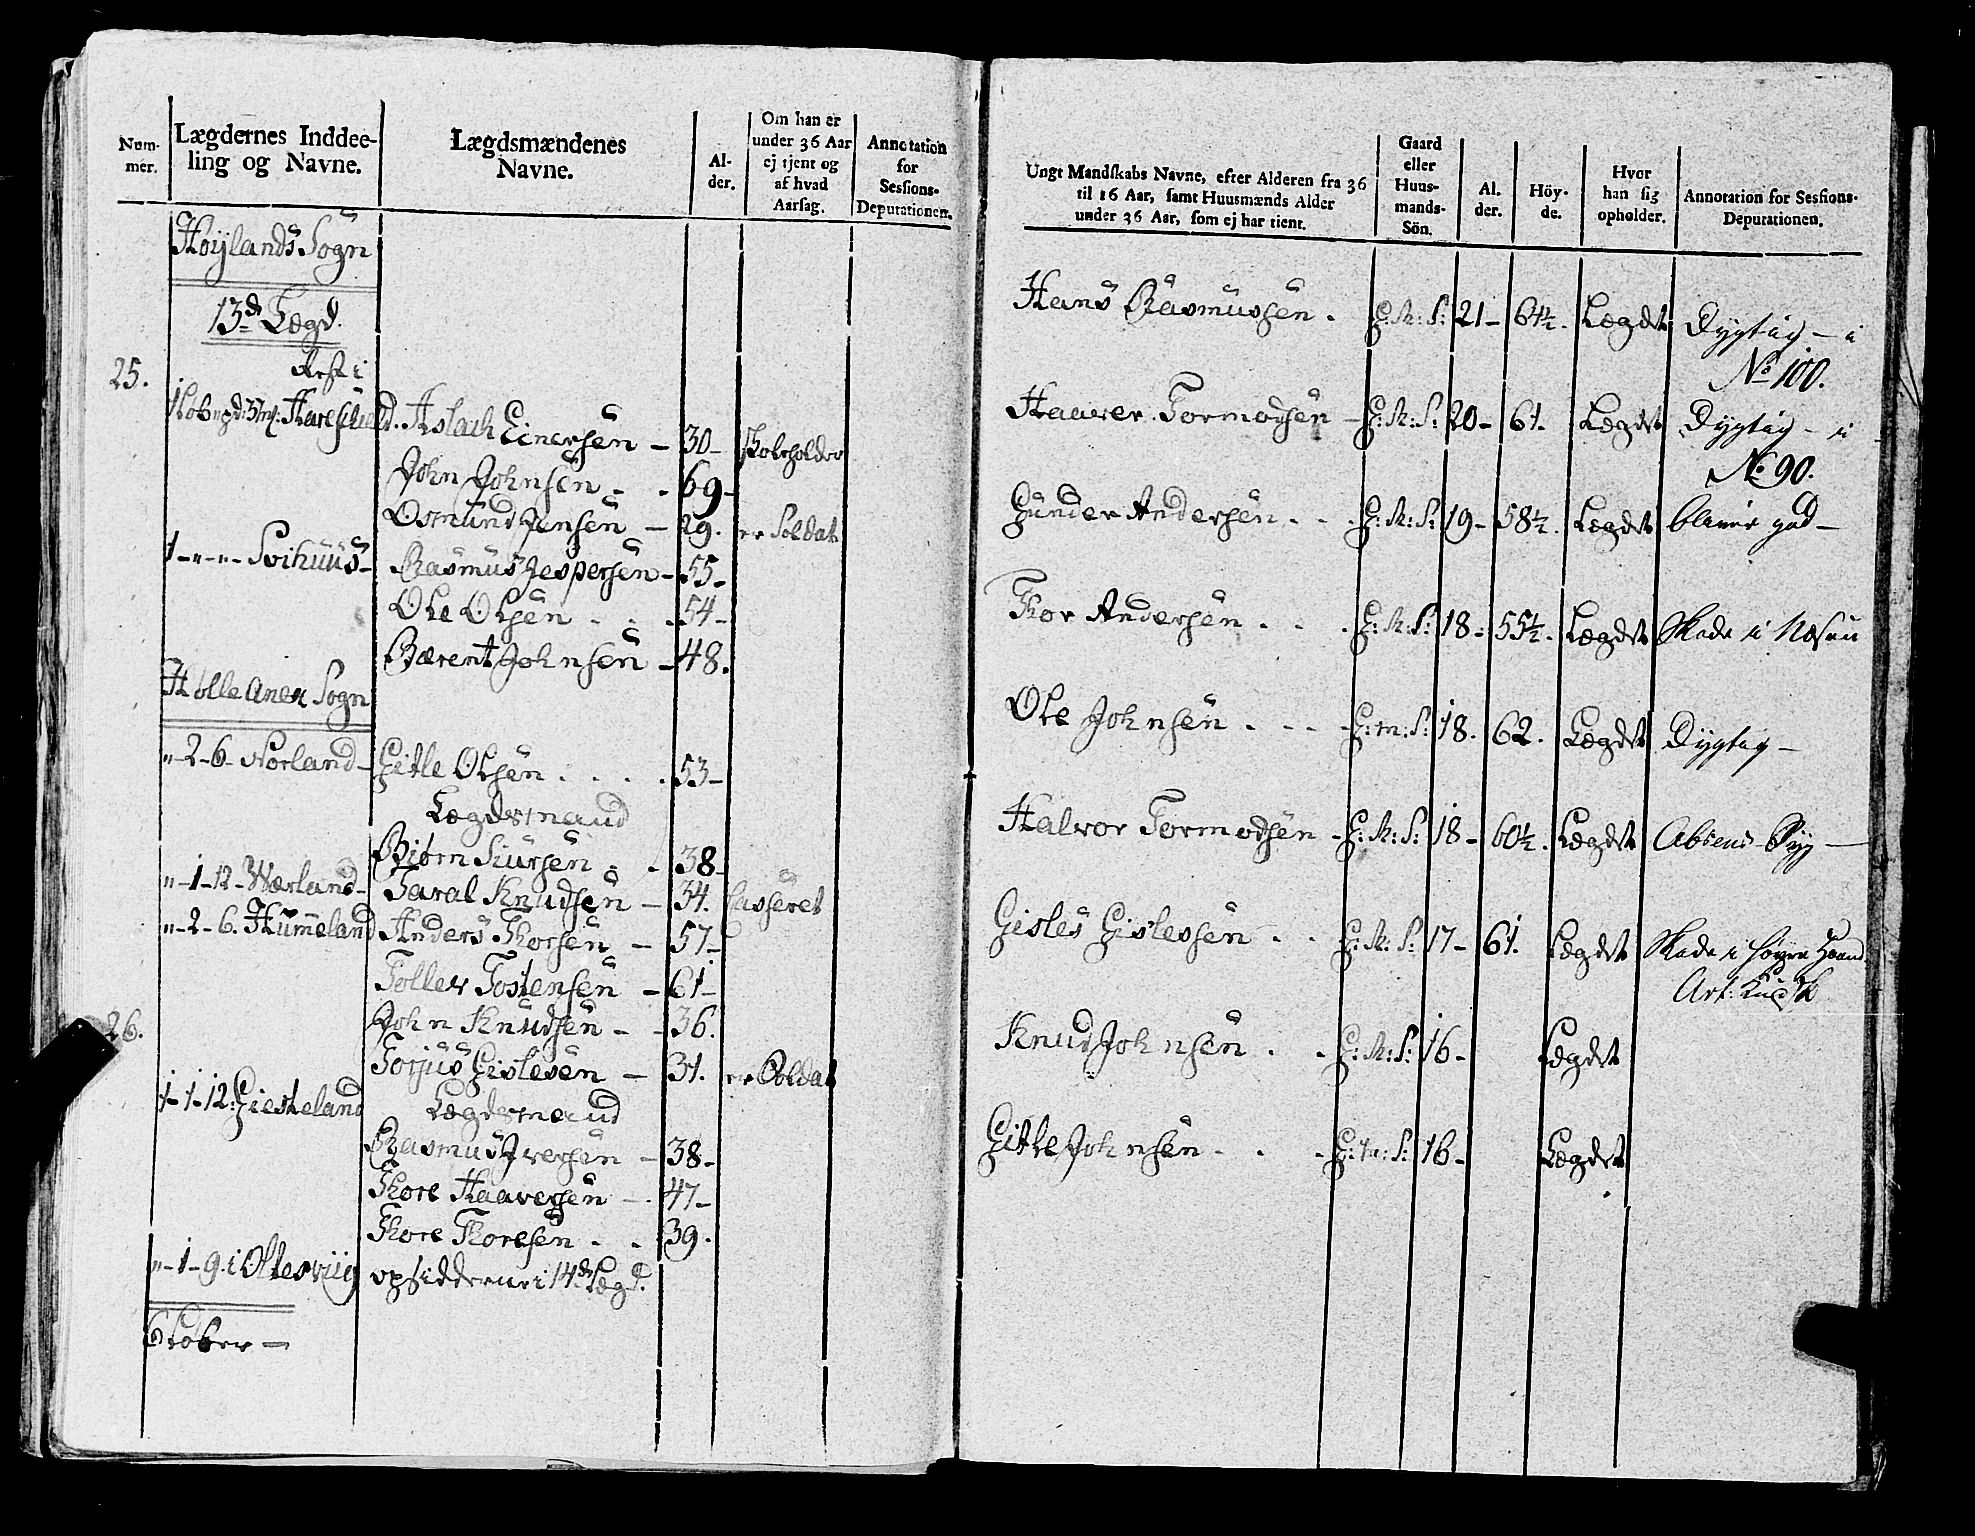 Num-
mer.
Lægdernes Inddee-
ling og Navne.
Lægdsmændenes
Navne.
Al-
der.
Om han er
under 36 Aar
ej tjent og
af hvad
Aarsag.
Annotation
for
Sessions-
Deputationen.
Höÿlands Sogn
13de Lægd.
25.
Rest i
Aslach Einersen - 30 - Skoleholder
John Johnsen . . 69 -
Osmund Jensen - 29. er Soldat
1 - " - " - Svihuus - Rasmus Jespersen - 55 -
Ole Olsen . . . 54 -
Bærent Johnsen - 48.
Holle Sogn
" - 2 - 6 - Norland - Gitle Olsen . . . . 53 -
Lægdsmand
Biörn Siursen . . 38 -
" - 1 - 12 - Wærland - Taral Knudsen - 34. Casseret
" - 2 - 6. Hummeland Anders Thorsen - 57 -
Tollev Tostensen - 61 -
26. John Knudsen - - 36.
Torjus Gislesen - 31. er Soldat
1 - 1 - 12 : Giesteland Lægdsmand
Rasmus Iversen - 38 -
Thore Haaversen - . 47 -
Thore Thoresen . . 39 .
" - 1 - 9. i Oltesviig opsidderne i 14de Lægd.
6 Lober -
Ungt Mandskabs Navne, efter Alderen fra 36
til 16 Aar, samt Huusmænds Alder
under 36 Aar, som ej har tient.
Gaard
eller
Huus-
mands-
Sön.
Al.
der.
Höy-
de.
Hvor
han sig
opholder.
Annotation for Sessions-
Deputationen.
Hans Rasmussen . G: M: S: 21 - 64½. Lægdet Dygtig - i
No 100.
Haaver Tormodsen - G: M: S: 20 - 61. Lægdet Dygtig - i
No 90.
Gunder Andersen . . . G: M: S: 19 - 58½. Lægdet bliver god -
Thor Andersen . . . G: M: S: 18 - 55½. Lægdet Skade i Næsen
Ole Johnsen . - - - G: m: S: 18. 62. Lægdet Dygtig -
Halvor Tormodsen - G: M: S: 18 - 60½. Lægdet Absens Syg -
Gisles Gislessen . . G: M: S: 17 - 61. Lægdet Skade i höyre Haand
Knud Johnsen . . G: M: S: 16 - Lægdet
Gitle Johnsen . . - G: m: S: 16 - Lægdet